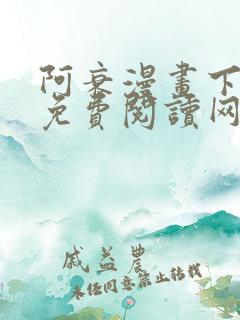 阿衰漫畫下
免費閱讀网
戚益農
未经同意禁止转载